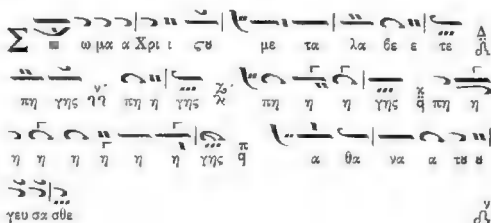 Σ ω μα α Χρι ι ϛȣ με τα λα βε ε τε Δ
πη γης πη η γης πη η η γης πη η
η η η η η η γης α θα να α τȣ ȣ
γευ σα σθε